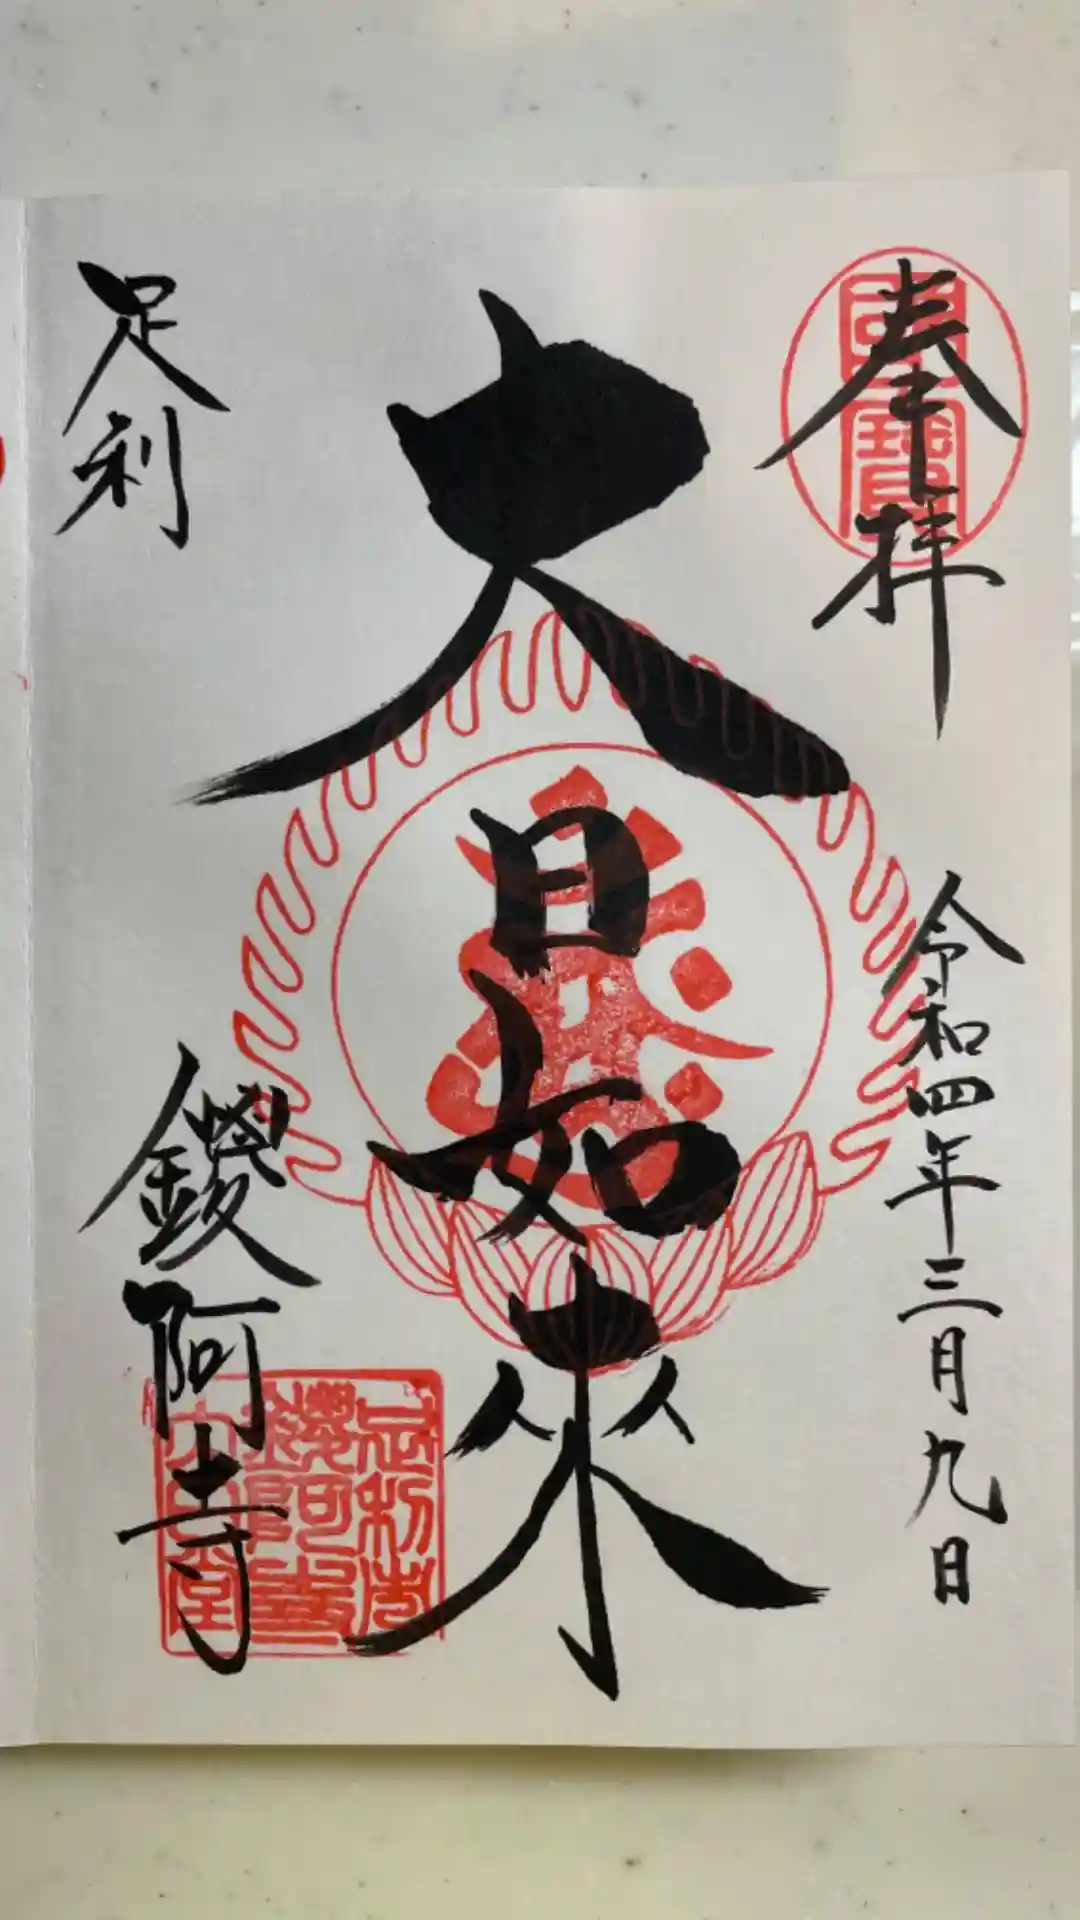 奉拝
國寶
令和四年三月九日
大日如来
足利
鑁阿寺
足利市
鑁阿寺
大御堂